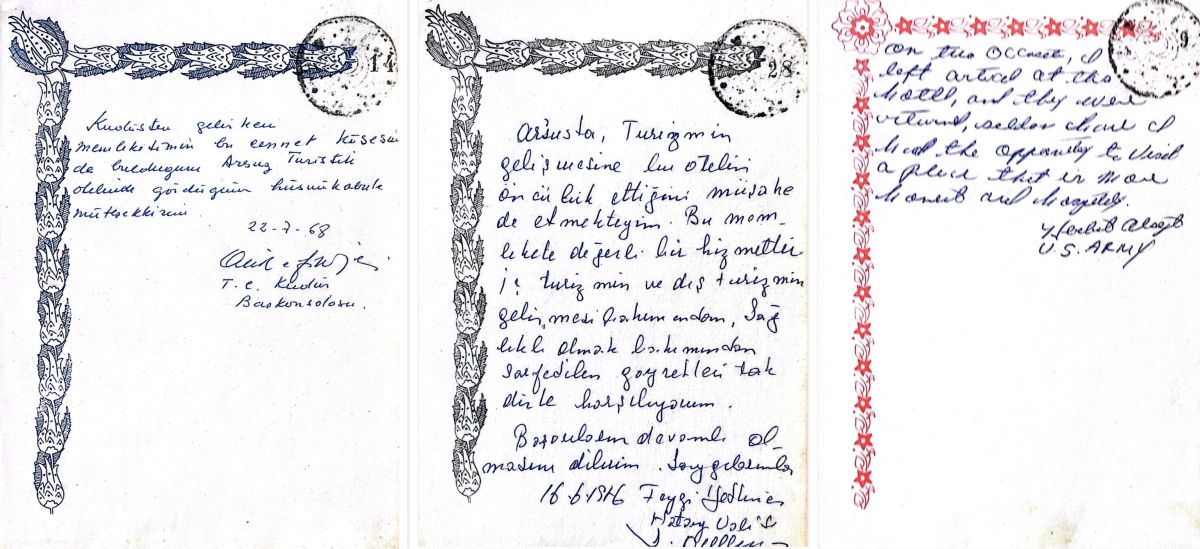 14
Kudüsten gelirken
memleketimin bu cennet köşesin
de bulduğum Arsuz Turistik
otelinde gördüğüm hüsnükabule
müteşekkirim
22-7-68
T. C. Kudüs
Başkonsolosu.
28
Arsusta, Turizmin
gelişmesine bu otelin
öncülük ettiğini müşahe
de etmekteyim. Bu mem-
lekete değerli bir hizmettir
iç turizmin ve dış turizmin
gelişmesi bakımından, sağ
lıklı olmak bakımından
sarfedilen gayretleri tak
dirle karşılıyorum.
Başarıların devamlı ol-
masını dilerim. Saygılarımla
16.6.1966 Feyzi
Hatay Valisi
9
On two I
left at the
Hotel, and they were
return, seldon have I
had the oppanity to visit
a place that is more
and
U.S. ARMY